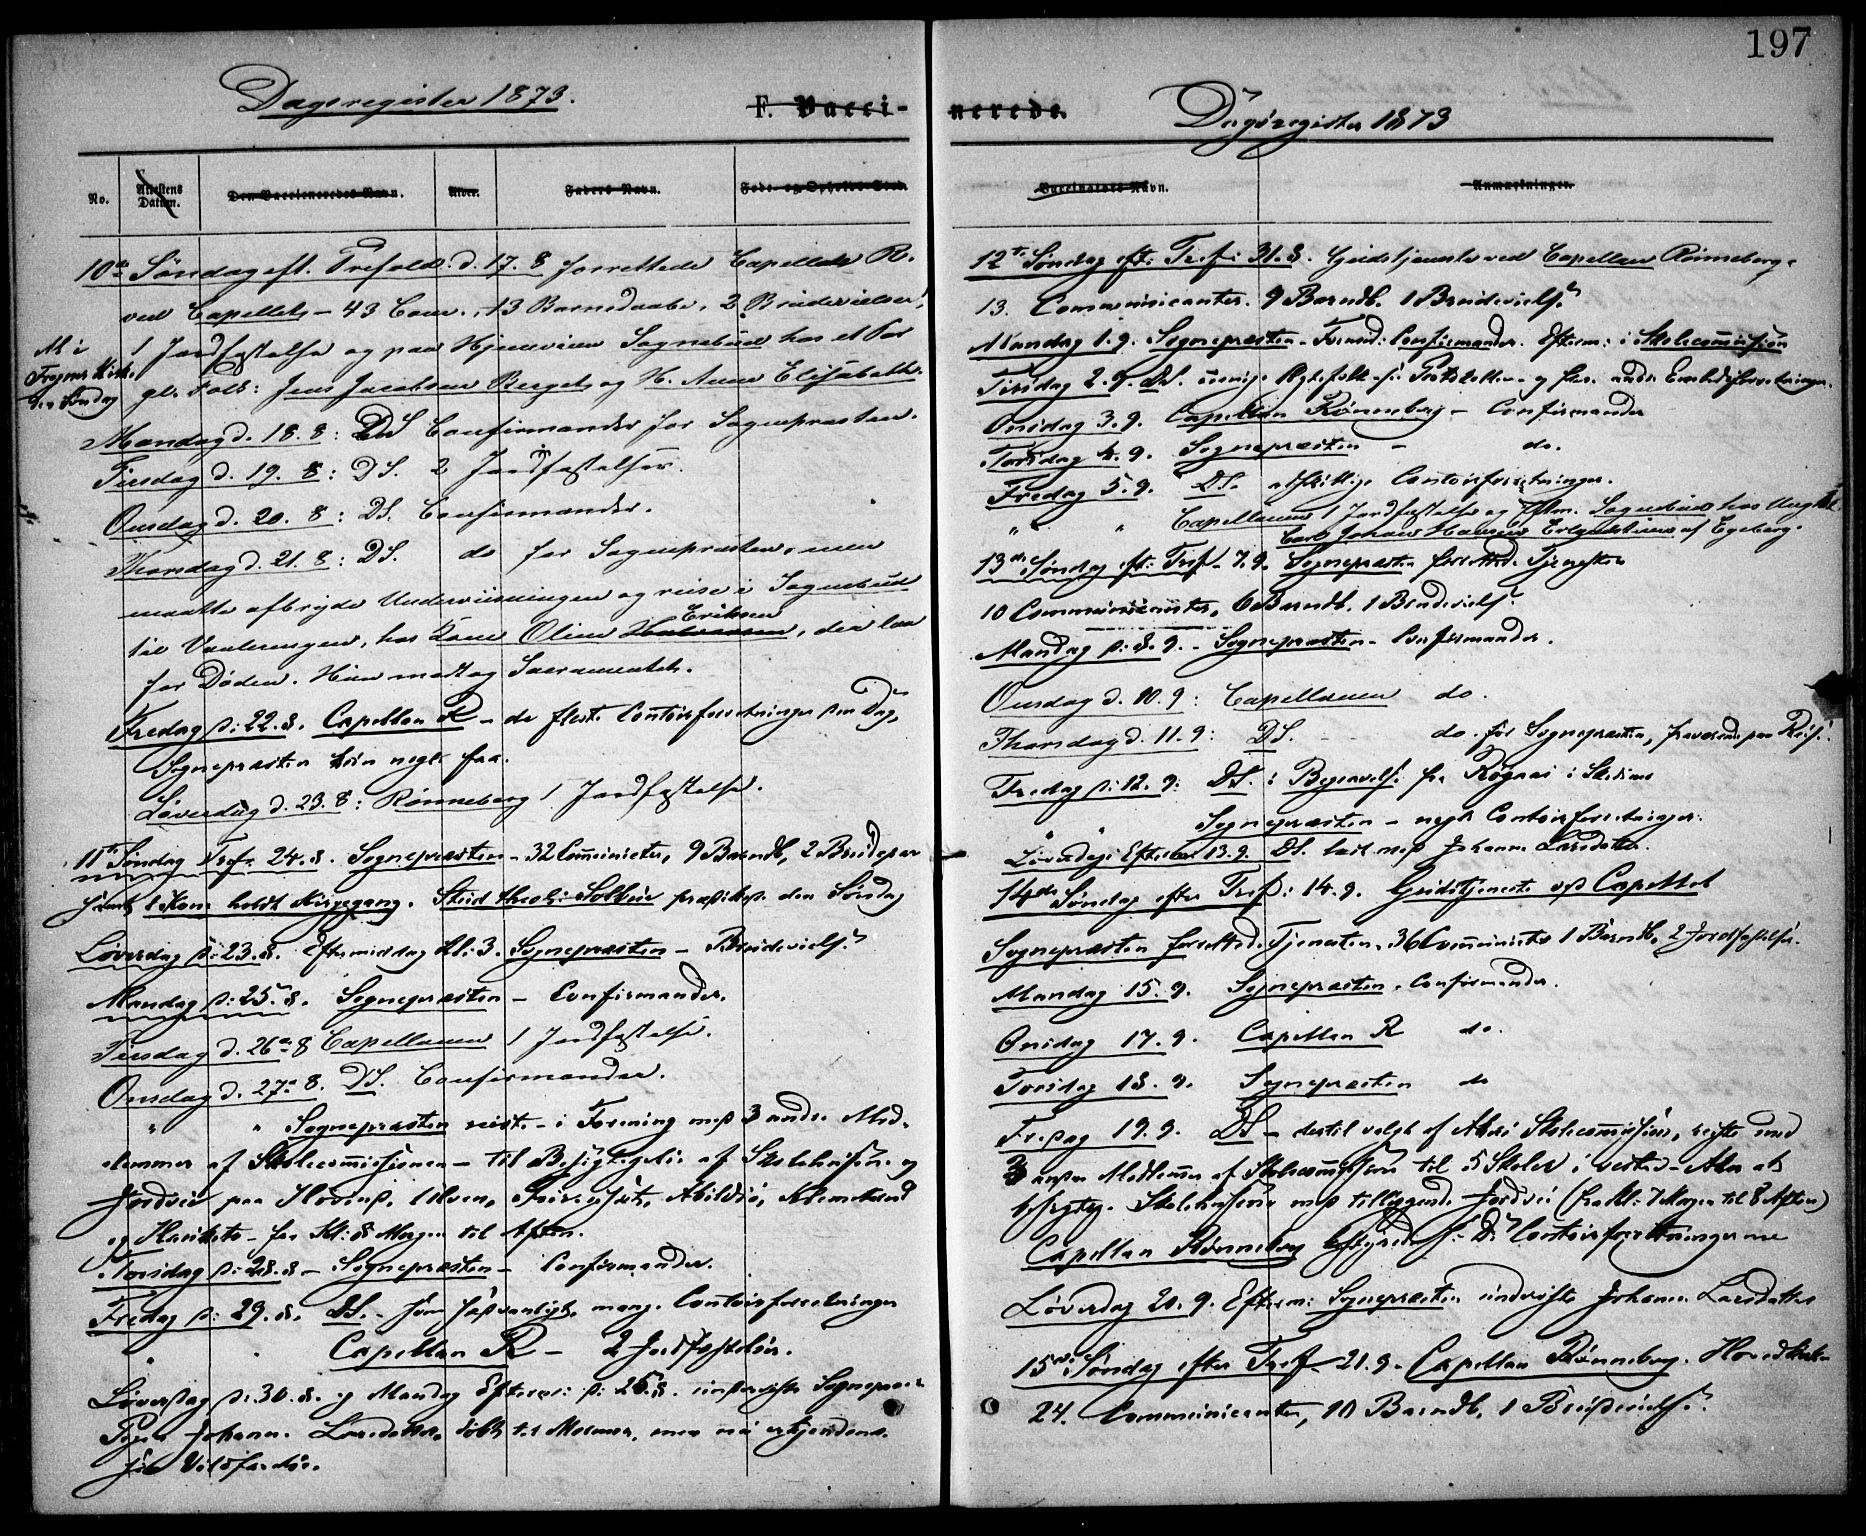 197
Dagsregister 1873.
F. Vacci-
nerede.
Dagsregister 1873
No.
Attestens Datum.
Den Vaccineredes Navn.
Alder.
Faders Navn.
Føde- og Opholds-Sted.
10de Søndag eft. Trefold: d. 17. 8 forrettede Capellan R.
ved Capellet - 43 Com., 13 Barnedaabe, 2 Brudevielser,
1 Jordfæstelse og paa Hjemveien Sognebud hos et Par
gl. Folk: Jens Jacobsen Berget og H. Anne Elisabeth
Mandag d. 18. 8: DS Confirmander for Sognepræsten.
Tirsdag d. 19. 8: DS. 2 Jordfæstelser.
Onsdag d. 20. 8: DS. Confirmander.
Thorsdag d. 21. 8: DS. do for Sognepræsten, men
maatte afbryde Underviisningen og reise i Sognebud
Eriksen
til Vaaleringen, hos Kone Oline Halvorsen, der laa
for Døden. Hun modtog Sacramentet.
Fredag d: 22. 8. Capellan R - de fleste Contoirforretninger den Dag,
Sognepræsten kun nogle faa.
Løverdag d. 23. 8: Rønneberg 1 Jordfæstelse.
11te Søndag Tref: 24. 8. Sognepræsten - 32 Communicter, 9 Barndb, 2 Brudepar
1 Kone holdt Kirkegang. Stud theol: Solberg prædikede den Søndag
Løverdag d: 23. 8. Eftermiddag Kl: 3. Sognepræsten - Brudevielse
Mandag d: 25. 8. Sognepræsten - Confirmander.
Tirsdag d. 26de 8 Capellanen 1 Jordfæstelse.
Onsdag d. 27de 8. DS. Confirmander.
" " Sognepræsten reiste - i Forening med 3 andre Med-
lemmer af Skolecommissionen - til Besigtigelse af Skolehusene og
Jordvei paa Ulven, Abildsø,
og - fra Kl: 8 Morgen til Aften.
Torsdag d: 28. 8 - Sognepræsten - Confirmander.
Fredag d: 29. 8. DS. - som sædvanligt mange Contoirforretninger
" " Capellan R - 2 Jordfæstelser.
Løverdag d: 30. 8. og Mandag Efterm: d: 25. 8. underviste Sognepræsten
Pigen Johanne Larsdatter, døbt til Mormon, men nu erkjendende
sin Vildfarelse.
M i
Frogner Kirke
den Søndag
Vaccinators Navn.
Anmærkninger.
12te Søndag eft: Tref: 31. 8. Gudstjeneste ved Capellan Rønneberg.
13. Communicanter. 9 Barndb. 1 Brudevielse
Mandag 1. 9. Sognepræsten - Formid: Confirmander. Efterm: i Skolecommission
Tirsdag 2. 9. DS. Protokollen og flere andre Embedsforretninger.
Onsdag 3. 9. Capellan Rønneberg - Confirmander
Torsdag 4. 9. Sognepræsten - do.
Fredag 5. 9. DS. adskillige Contoirforretninger.
" " Capellanen 1 Jordfæstelse og Sognebud hos
Carl Johan Hansen af Egeberg.
13de Søndag eft: Tref. 7. 9. Sognepræsten forrettede Tjenesten
10 Communicanter, 6 Barndb. 1 Brudevielse
Mandag d: 8. 9. - Sognepræsten - Confirmander.
Onsdag d. 10. 9: Capellanen do.
Thorsdag d. 11. 9: DS. - do. for Sognepræsten, fraværende paa Reise.
Fredag d: 12. 9: DS. 1 Begravelse fra i
" " Sognepræsten - nogle Contoirforretninger.
Løverdag Efterm 13. 9. DS. læst med Johanne Larsdatter.
14de Søndag efter Tref: 14. 9. Gudstjeneste ved Capellet
Sognepræsten forrettede Tjenesten. 36 Communicter 1 Barndb. 2 Jordfæstelser.
Mandag 15. 9. Sognepræsten. Confirmander.
Onsdag 17. 9. Capellan R do.
Torsdag 18. 9. Sognepræsten do
Fredag 19. 9. DS - dertil valgt af Akers Skolecommission, reiste med
3 andre Medlemmer af Skolecommissionen til 5 Skoler i vestre Aker at
besigtige Skolehusene med tilliggende Jordvei (fra Kl: 7 Morgen til 8 Aften)
Capellan Rønneberg besørgede s. D. Contoirforretningerne
Løverdag 20. 9. Efterm: Sognepræsten underviste Johanne Larsdatter
15de Søndag efter Tref 21. 9 - Capellan Rønneberg. Hovedkirken
24. Communicanter, 10 Barndb. 1 Brudevielse.